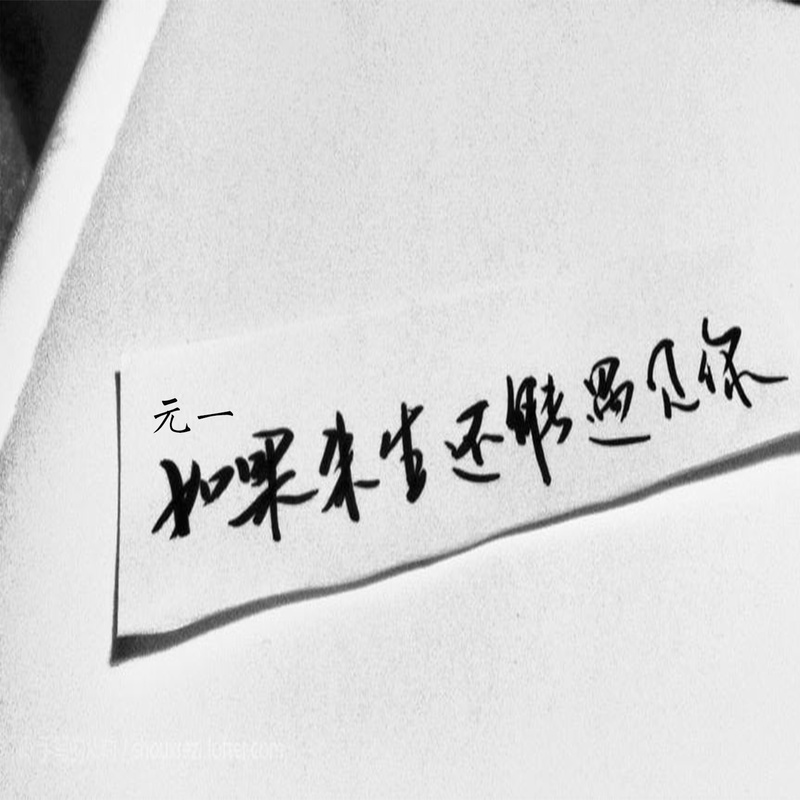 元一
如果来生还能遇见你